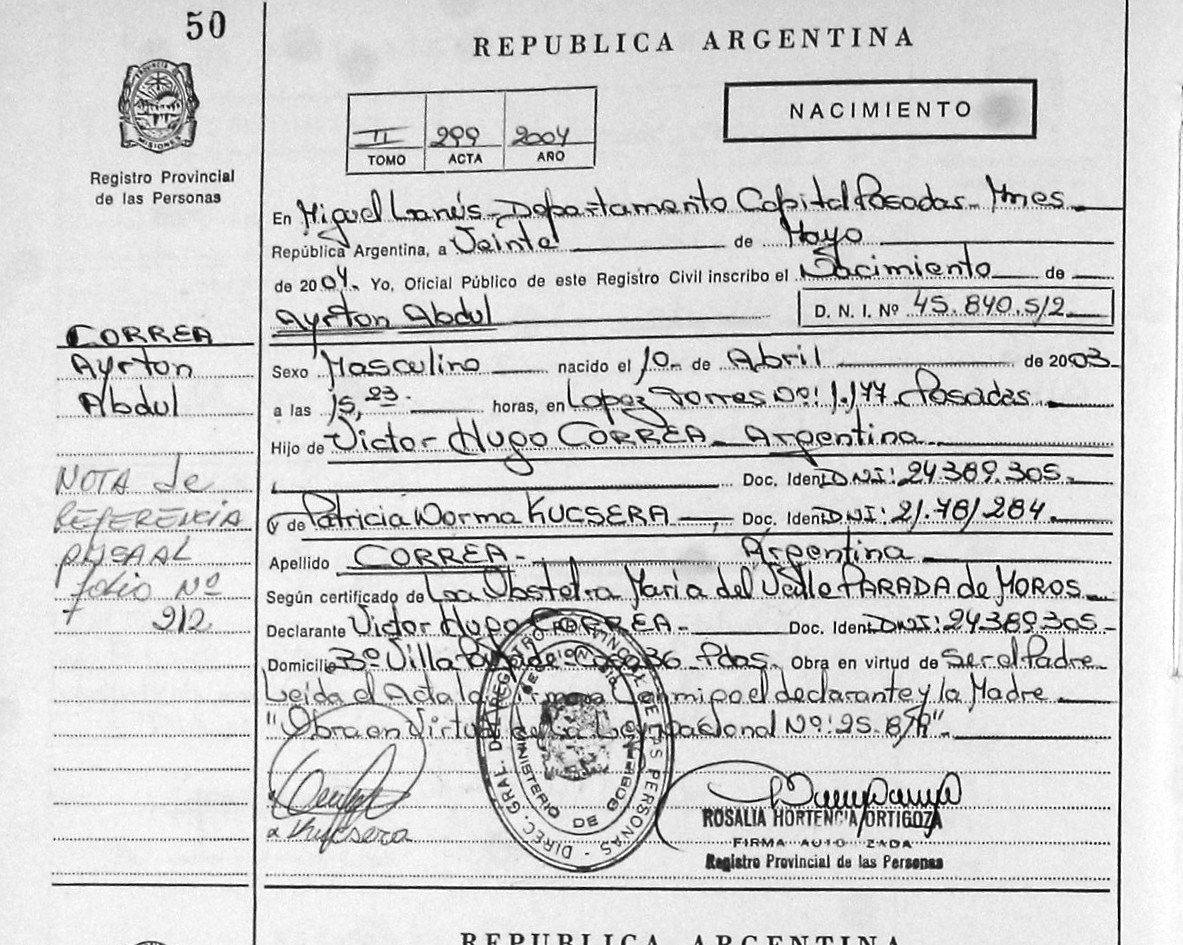 50
REPUBLICA ARGENTINA
PROVINCIA DE
MISIONES
NACIMIENTO
II 299 2004
TOMO ACTA AÑO
Registro Provincial
de las Personas
En Miguel Lanús - Departamento Capital Posadas - Mnes
República Argentina, a Veinte de Mayo
de 2004. Yo, Oficial Público de este Registro Civil inscribo el Nacimiento de
Ayrton Abdul D. N. I. Nº 45.840.512
CORREA
Ayrton
Abdul
Sexo Masculino nacido el 10 de Abril de 2003
a las 15,23 horas, en Lopez Torres Nº: 1.177 Posadas
Hijo de Victor Hugo CORREA - Argentina
Doc. Ident DNI: 24.389.305.
y de Patricia Norma KUCSERA, Doc. Ident DNI: 21.781284.
Apellido CORREA - Argentina
Según certificado de La Obstetra Maria del Valle PARADA de MOROS
Declarante Victor Hugo CORREA - Doc. Ident DNI: 24389305-
Domicilio Bº Villa Casa 36 Pdas. Obra en virtud de Ser el Padre
Leida el Acta la conmigo el declarante y la Madre
"Obra en Virtud de La Ley Nacional Nº: 25.819".
NOTA de
REFERENCIA
PASA AL
folio Nº
212
DIREC. GRAL. DEL REGISTRO PROVINCIAL DE LAS PERSONAS
MINISTERIO DE GOBIERNO
Kucsera
ROSALIA HORTENCIA ORTIGOZA
FIRMA AUTO ZADA
Registro Provincial de las Personas
REPUBLICA ARGENTINA